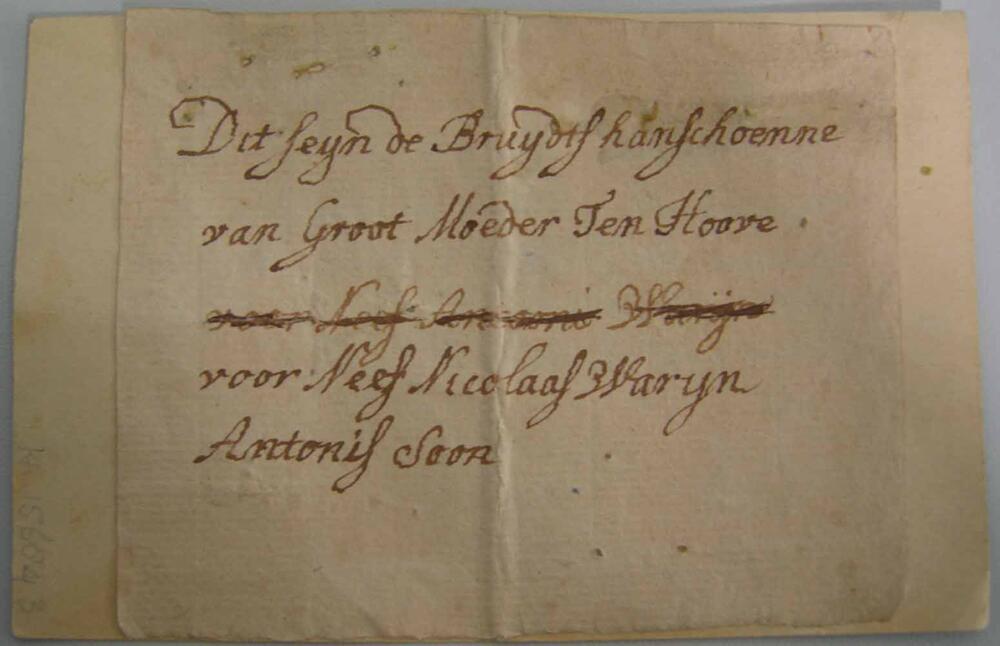 Dit seyn de Bruydts hanschoenne
van Groot Moeder Ten Hoove
voor Neef Antoni Warijn
voor Neef Nicolaas Waryn
Antonis Soon